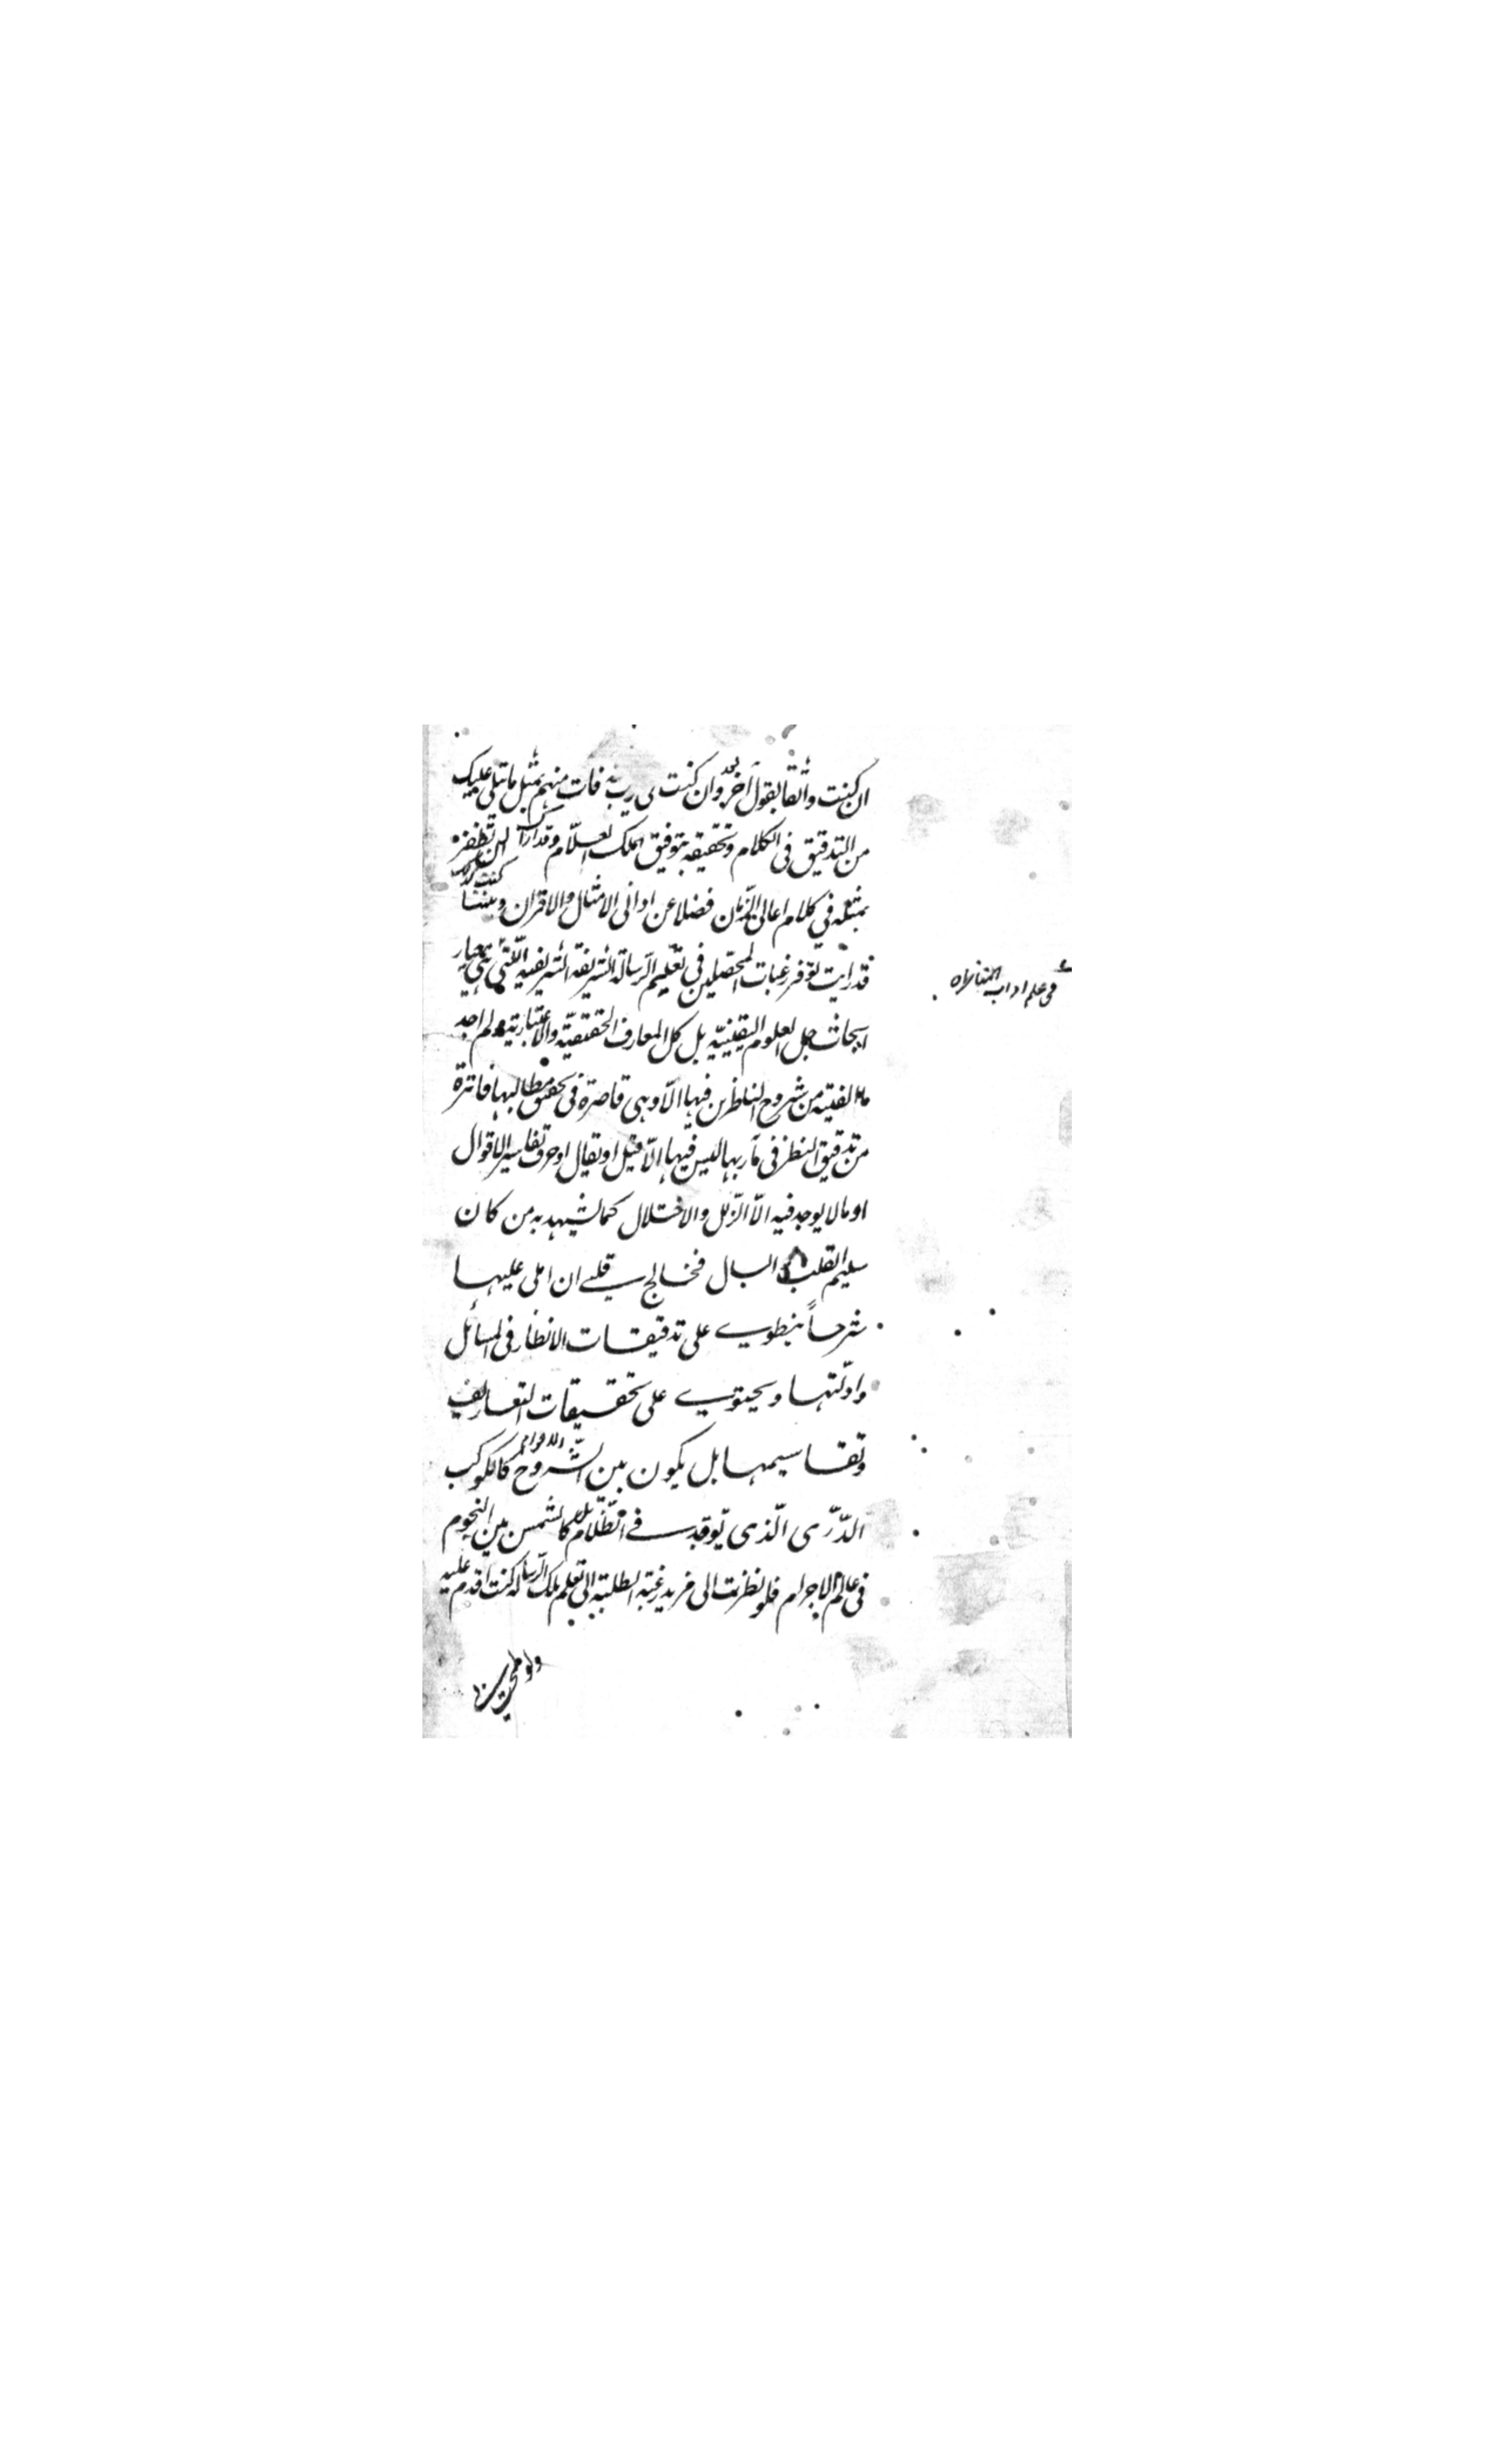 ان كنت واثقا بقول اخر وان كنت فى ريب فات منهم بمثل ما يتلى عليك
من التدقيق فى الكلام وتحقيقه بتوفيق الملك العلام وقد اراك لن تظفر
بمثله فى كلام اعالى الزمان فضلا عن ادانى الامثال والاقران وبينا
قد رايت توفر رغبات المحصلين فى تعليم الرسالة الشريفة الشريفية التى هى معيار
فى علم اداب المناظره
ابحاث جل العلوم اليقينيّة بل كل المعارف الحقيقيّة والاعتبارية ولم اجد
ما الفيته من شروح الناظرين فيها الّا وهى قاصرة فى تحقيق مطالبها فاترة
من تدقيق النظر فى مآربها ليس فيها الّا قيل او يقال او حرف تفاسير الاقوال
او ما لا يوجد فيه الّا الزّلل والاختلال كما يشهد به من كان
سليم القلب و البال فخالج فى قلبى ان املى عليها
شرحاً ينطوى على تدقيقات الانظار فى المسائل
وادلتها ويحتوى على تحقيقات التعاريف
وتقاسيمها بل يكون بين الشّروح كالكوكب
الدّرّى الّذى توقد فى الظّلام بل كالشمس بين النجوم
فى عالم الاجرام فلو نظرت الى مزيد رغبة الطلبة الى تعلم تلك الرسالة كنت اقدم عليه